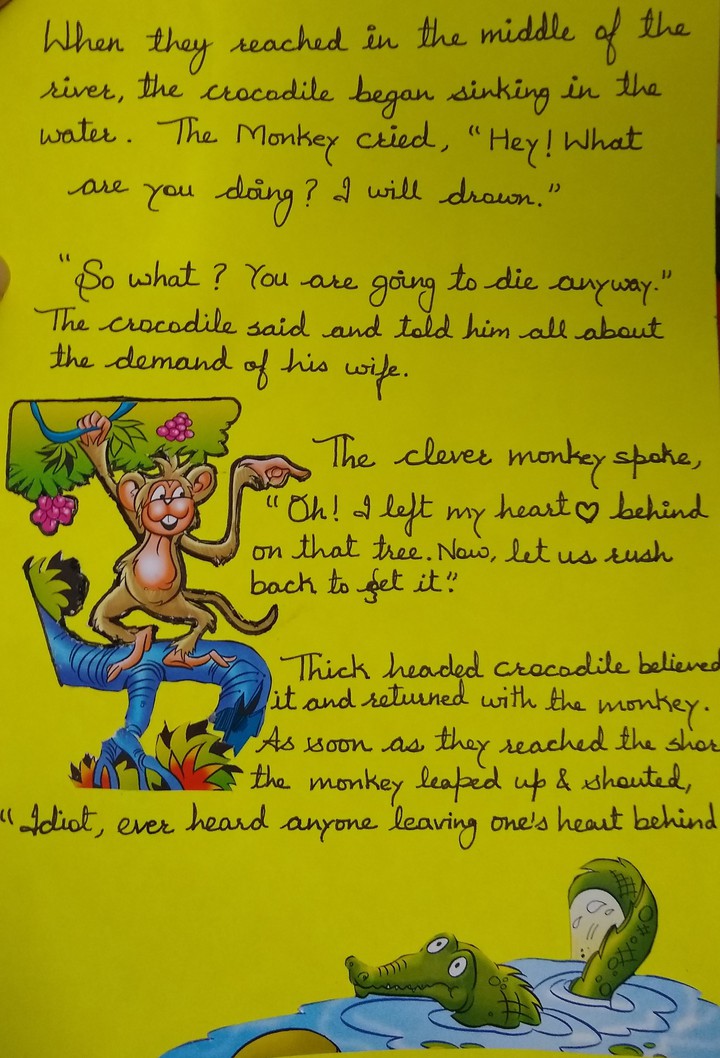 When they reached in the middle of the
river, the crocodile began sinking in the
water. The Monkey cried, "Hey! What
are you doing? I will drown."
"So what? You are going to die anyway."
The crocodile said and told him all about
the demand of his wife.
The clever monkey spoke,
"Oh! I left my heart♡ behind
on that tree. Now, let us rush
back to get it."
Thick headed crocodile believed
it and returned with the monkey.
As soon as they reached the shor
the monkey leaped up & shouted,
"Idiot, ever heard anyone leaving one's heart behind